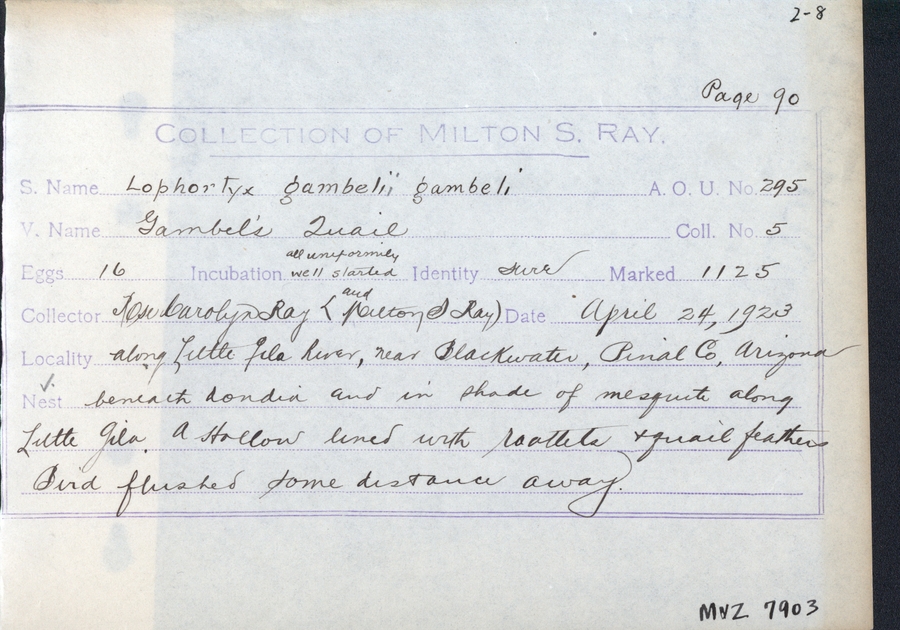 2-8
Page 90
COLLECTION OF MILTON S. RAY.
S. Name Lophortyx gambelii gambeli A. O. U. No. 295
V. Name Gambel's Quail Coll. No. 5
Eggs 16 Incubation all uniformily well started Identity sure Marked 1125
Collector Rose Carolyn Ray (and Milton S Ray) Date April 24, 1923
Locality along Little Gila River, near Blackwater, Pinal Co, Arizona
Nest beneath condia and in shade of mesquite along
Little Gila. A Hollow lined with rootlets + quail feathers
Bird flushed some distance away.
MVZ 7903